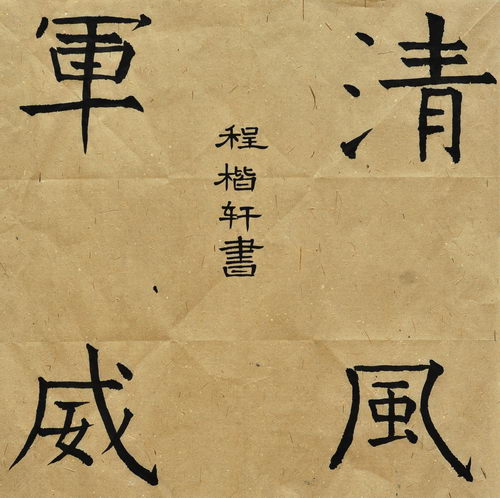 清風
程楷轩書
軍威